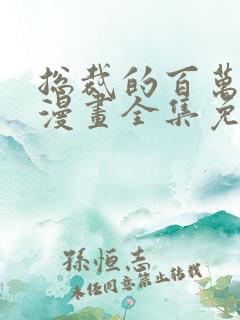 總裁的百萬
漫畫全集免
孫恒志
未经同意禁止转载